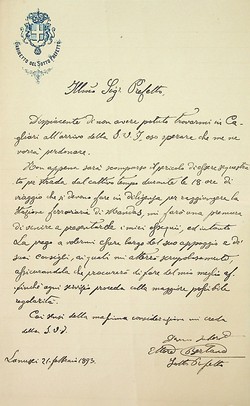 GABINETTO DEL SOTTO PREFETTO
Illmo Sigr Prefetto,
Dispiacente di non avere potuto trovarmi in Ca-
gliari all'arrivo della S. V. I. oso sperare che me ne
vorrà perdonare.
Non appena sarà scomparso il pericolo di essere
to per strada dal cattivo tempo durante le 18 ore di
viaggio che si devono fare in diligenza per raggiungere la
stazione ferroviaria di mi farò una premura
di venire a presentarle i miei ossequi, ed intanto
La prego a volermi essere largo del suo appoggio e de'
suoi consigli, ai quali mi atterrò scrupolosamente,
assicurandola che procurerò di fare del mio meglio af-
finchè ogni servizio proceda colla maggiore possibile
regolarità.
Coi sensi della massima considerazione mi creda
della S. V. I.
Ettore Bertand
Sotto Prefetto
Lanusei 21 febbraio 1893.